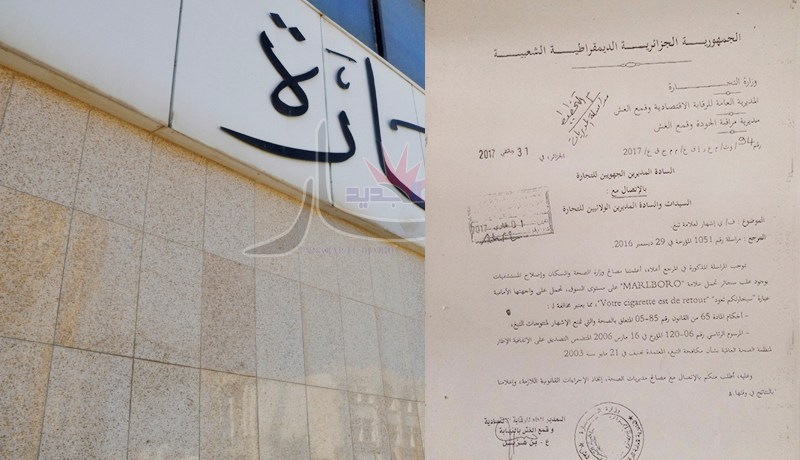 ـارة
الجمهورية الجزائرية الديمقراطية الشعبية
وزارة التجارة
المديرية العامة للرقابة الاقتصادية وقمع الغش
مديرية مراقبة الجودة وقمع الغش
رقم 94/ و ت/ م ع ر إ ق غ/ م م ج ق غ/ 2017
الجزائر، في 31 جانفي 2017
السادة المديرين الجهويين للتجارة
بالإتصال مع :
السيدات والسادة المديرين الولائيين للتجارة
01 2017
الموضوع : ف/ ي إشهار لعلامة تبغ.
المرجع : مراسلة رقم 1051 المؤرخة في 29 ديسمبر 2016.
بموجب المراسلة المذكورة في المرجع أعلاه، أعلمتنا مصالح وزارة الصحة والسكان وإصلاح المستشفيات
بوجود علب سجائر تحمل علامة "MARLBORO" على مستوى السوق، تحمل على واجهتها الأمامية
عبارة "سيجارتكم تعود" "Votre cigarette est de retour"، مما يعتبر مخالفة لـ :
- أحكام المادة 65 من القانون رقم 85-05 المتعلق بالصحة والتي تمنع الإشهار لمنتوجات التبغ،
- المرسوم الرئاسي رقم 06-120 المؤرخ في 16 مارس 2006 المتضمن التصديق على الإتفاقية الإطار
لمنظمة الصحة العالمية بشأن مكافحة التبغ، المعتمدة بجنيف في 21 مايو سنة 2003.
وعليه، أطلب منكم بالإتصال مع مصالح مديريات الصحة، إتخاذ الإجراءات القانونية اللازمة، وإعلامنا
بالنتائج في وقتها.
المدير العام للرقابة الاقتصادية
و قمع الغش بالنيابة